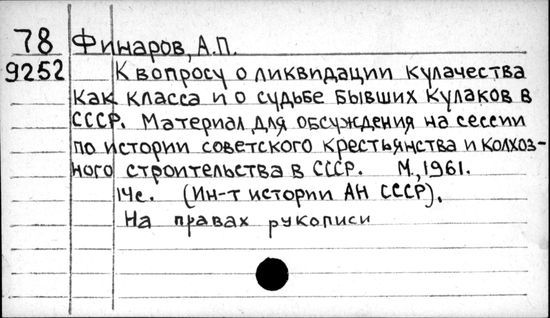 78 Финаров, А.П.
9252 К вопросу о ликвидации кулачества
как класса и о судьбе бывших кулаков в
СССР. Материал для обсуждения на сессии
по истории советского крестьянства и колхоз-
ного строительства в СССР. М., 1961.
14с. (Ин-т истории АН СССР).
На правах рукописи